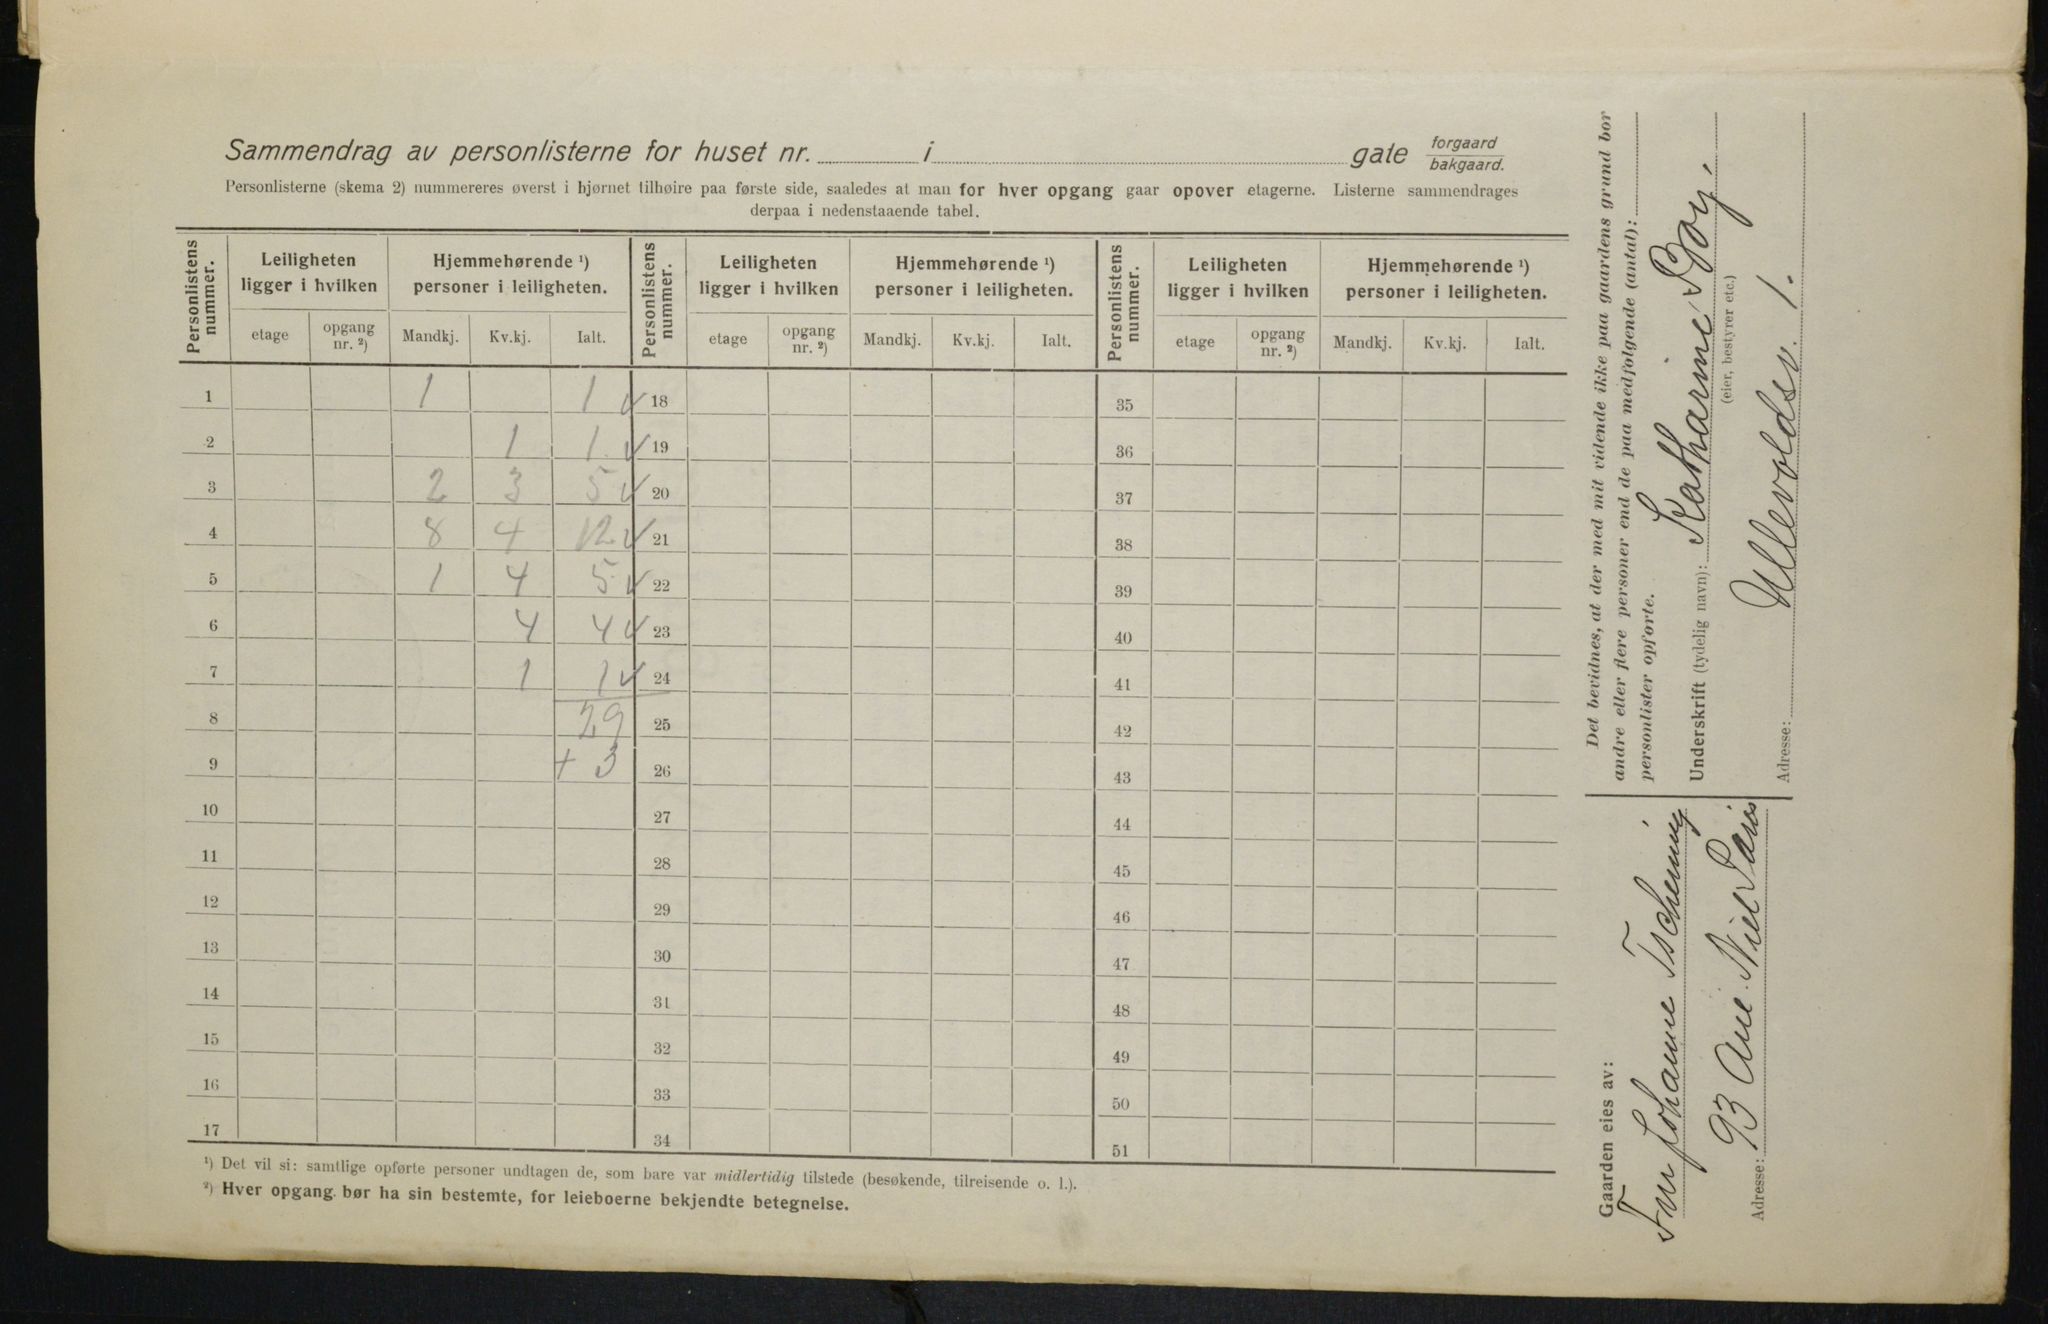 Sammendrag av personlisterne for huset nr. i gate forgaard bakgaard.
Personlisterne (skema 2) nummereres øverst i hjørnet tilhøire paa første side, saaledes at man for hver opgang gaar opover etagerne. Listerne sammendrages
derpaa i nedenstaaende tabel.
Personlistens nummer. Leiligheten ligger i hvilken Hjemmehørende ¹) personer i leiligheten. Personlistens nummer. Leiligheten ligger i hvilken Hjemmehørende ¹) personer i leiligheten. Personlistens nummer. Leiligheten ligger i hvilken Hjemmehørende ¹) personer i leiligheten.
etage opgang nr. ²) Mandkj. Kv.kj. Ialt. etage opgang nr. ²) Mandkj. Kv.kj. Ialt. etage opgang nr. ²) Mandkj. Kv.kj. Ialt.
1 1 1 ✓ 18 35
2 1 1 ✓ 19 36
3 2 3 5 ✓ 20 37
4 8 4 12 ✓ 21 38
5 1 4 5 ✓ 22 39
6 4 4 ✓ 23 40
7 1 1 ✓ 24 41
8 29 25 42
9 + 3 26 43
10 27 44
11 28 45
12 29 46
13 30 47
14 31 48
15 32 49
16 33 50
17 34 51
¹) Det vil si: samtlige opførte personer undtagen de, som bare var midlertidig tilstede (besøkende, tilreisende o. l.).
²) Hver opgang bør ha sin bestemte, for leieboerne bekjendte betegnelse.
Det bevidnes, at der med mit vidende ikke paa gaardens grund bor
andre eller flere personer end de paa medfølgende (antal):
personlister opførte.
Underskrift (tydelig navn): Katharine Boy.
(eier, bestyrer etc.)
Adresse: Ullevoldsv. 1.
Gaarden eies av:
Fru Johanne Tscherning
Adresse: 93 Ave Niel Paris